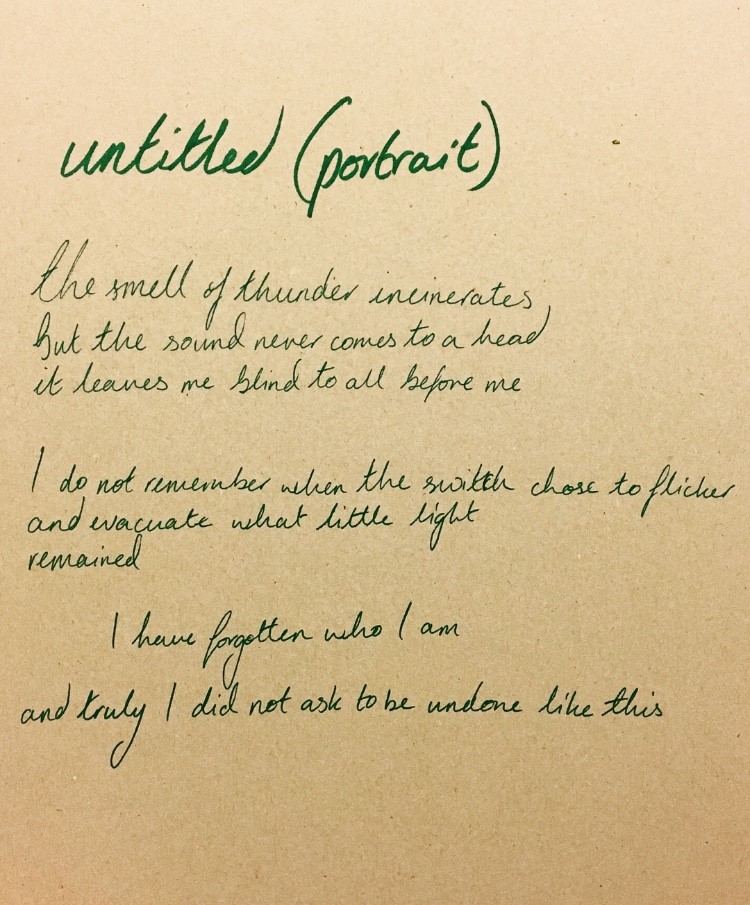 untitled (portrait)
the smell of thunder incinerates,
but the sound never comes to a head
it leaves me blind to all before me
I do not remember when the switch chose to flicker
and evacuate what little light
remained
I have forgotten who I am
and truly I did not ask to be undone like this